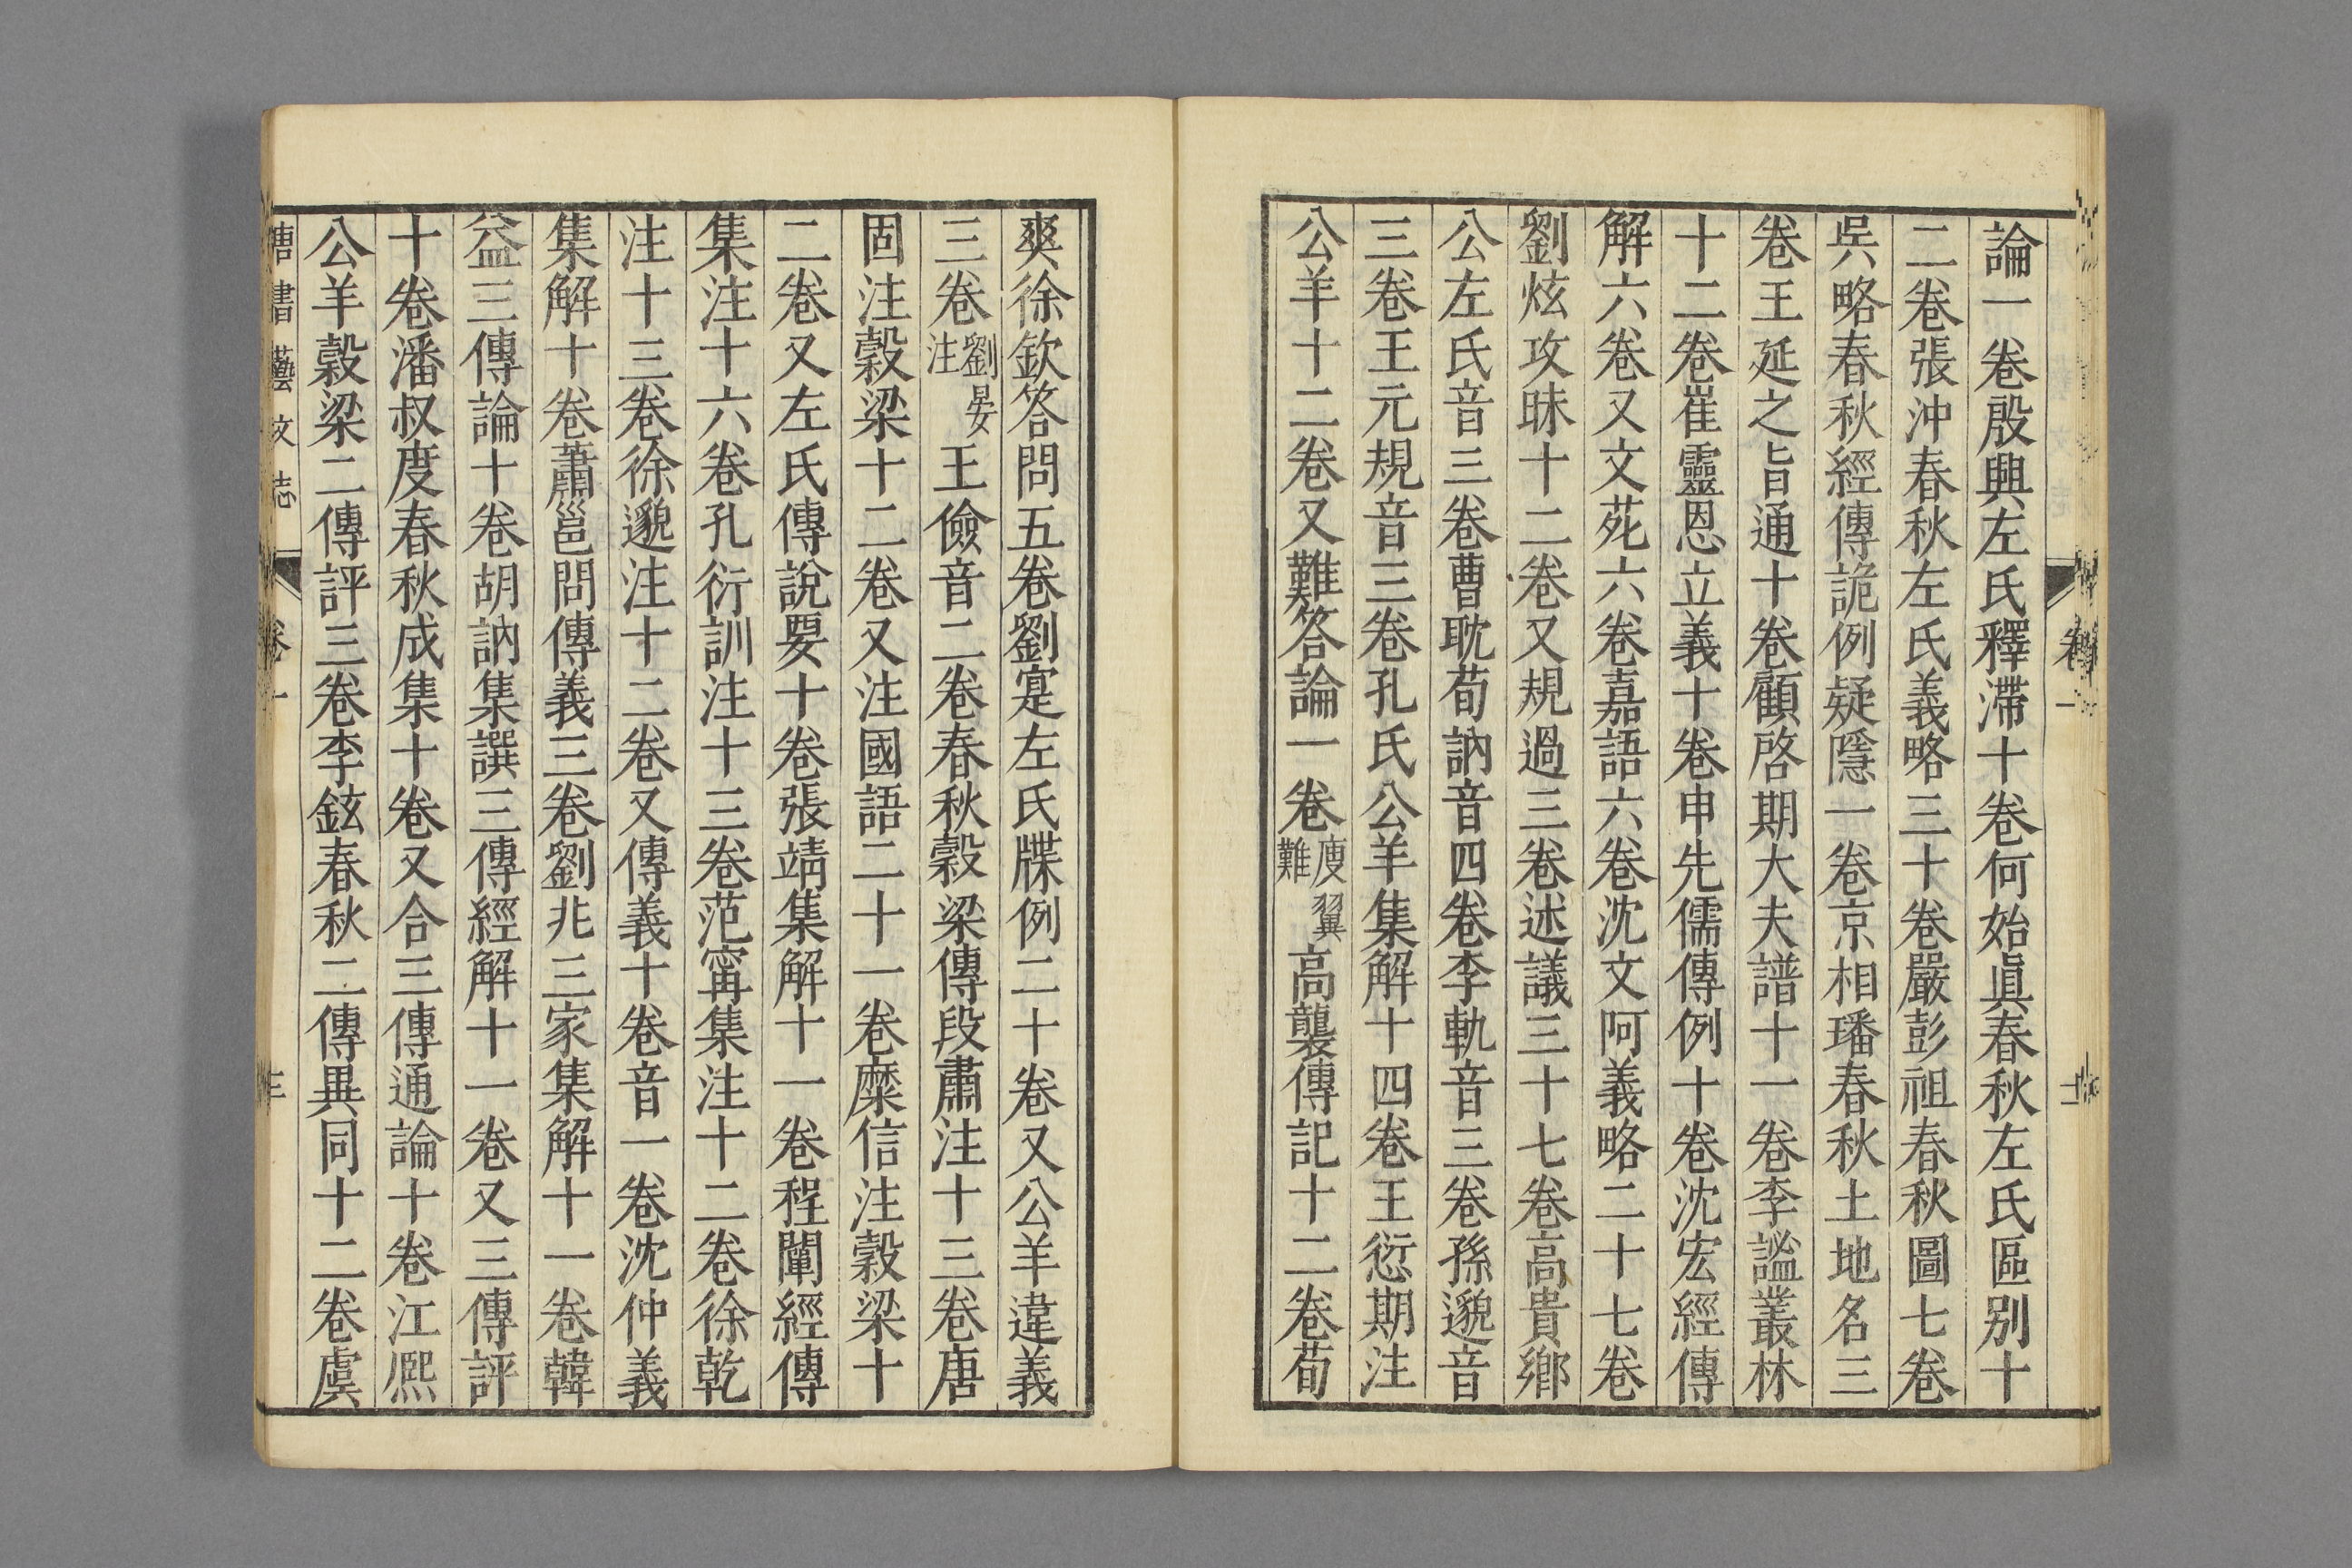 論一卷殷興左氏釋滯十卷何始眞春秋左氏區別十
二卷張沖春秋左氏義略三十卷嚴彭祖春秋圖七卷
吳略春秋經傳詭例疑隱一卷京相璠春秋土地名三
卷王延之旨通十卷顧啓期大夫譜十一卷李謐叢林
十二卷崔靈恩立義十卷申先儒傳例十卷沈宏經傳
解六卷又文苑六卷嘉語六卷沈文阿義略二十七卷
劉炫攻昧十二卷又規過三卷述議三十七卷高貴鄉
公左氏音三卷曹耽荀訥音四卷李軌音三卷孫邈音
三卷王元規音三卷孔氏公羊集解十四卷王愆期注
公羊十二卷又難答論一卷庾翼難高襲傳記十二卷荀
爽徐欽答問五卷劉寔左氏牒例二十卷又公羊違義
三卷劉晏注王儉音二卷春秋穀梁傳段肅注十三卷唐
固注穀梁十二卷又注國語二十一卷糜信注穀梁十
二卷又左氏傳說要十卷張靖集解十一卷程闡經傳
集注十六卷孔衍訓注十三卷范甯集注十二卷徐乾
注十三卷徐邈注十二卷又傳義十卷音一卷沈仲義
集解十卷蕭邕問傳義三卷劉兆三家集解十一卷韓
益三傳論十卷胡訥集譔三傳經解十一卷又三傳評
十卷潘叔度春秋成集十卷又合三傳通論十卷江熙
公羊穀梁二傳評三卷李鉉春秋二傳異同十二卷虞
唐書藝文志 卷一